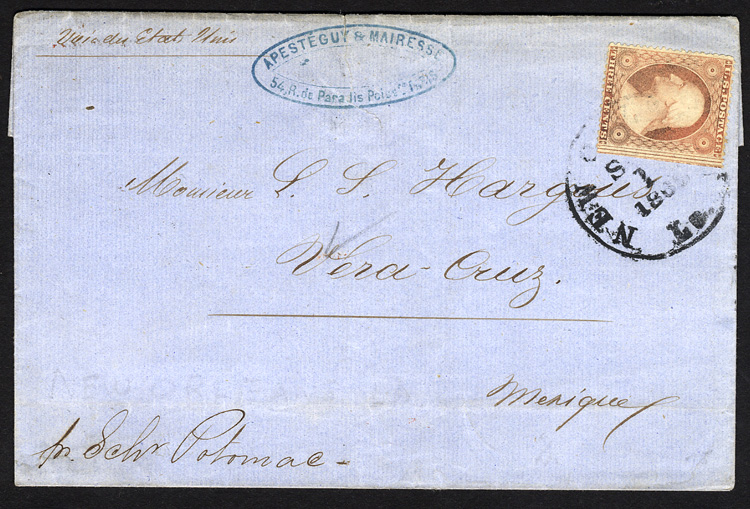 Voie des Etats Unis
APESTÉGUY & MAIRESSE
54, R. de Paradis Poissre PARIS
THREE CENTS
U.S. POSTAGE
NEW
S
La
Monsieur L. S. Hargous
Vera-Cruz.
NEW ORLEANS LA
Mexique
pr. Schr Potomac-